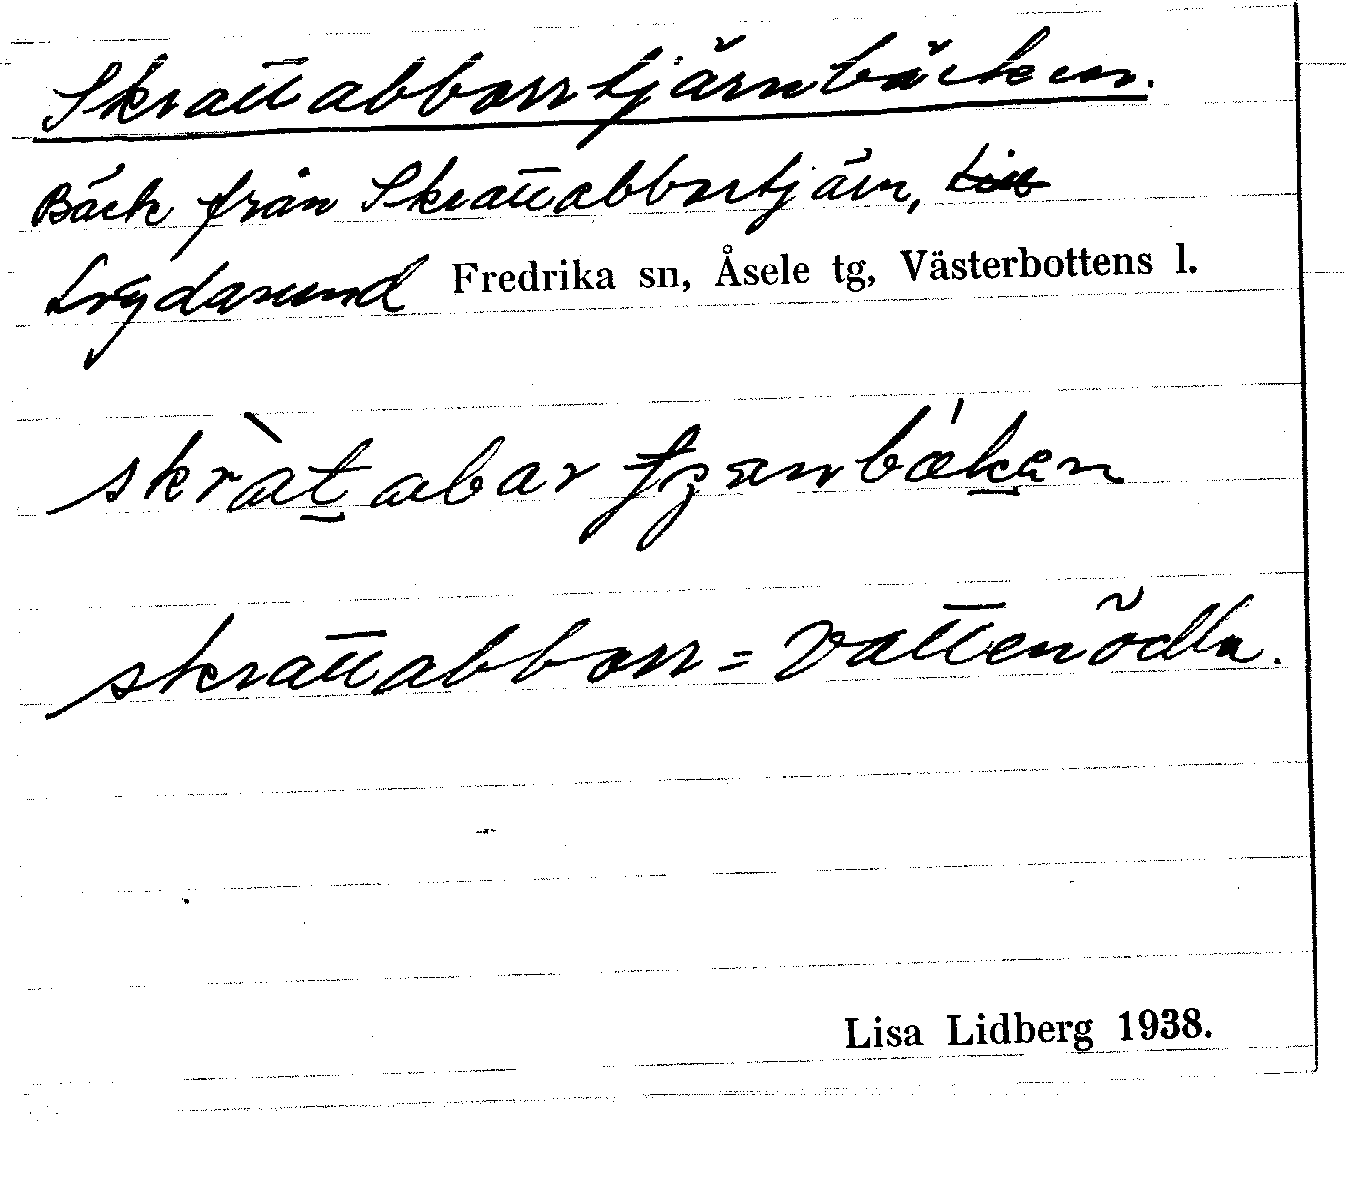 Skrattabborrtjärnbäcken.
Bäck från Skrattabborrtjärn, till
Lögdasund Fredrika sn, Åsele tg, Västerbottens l.
skrattabborr = Vattenödla.
Lisa Lidberg 1938.